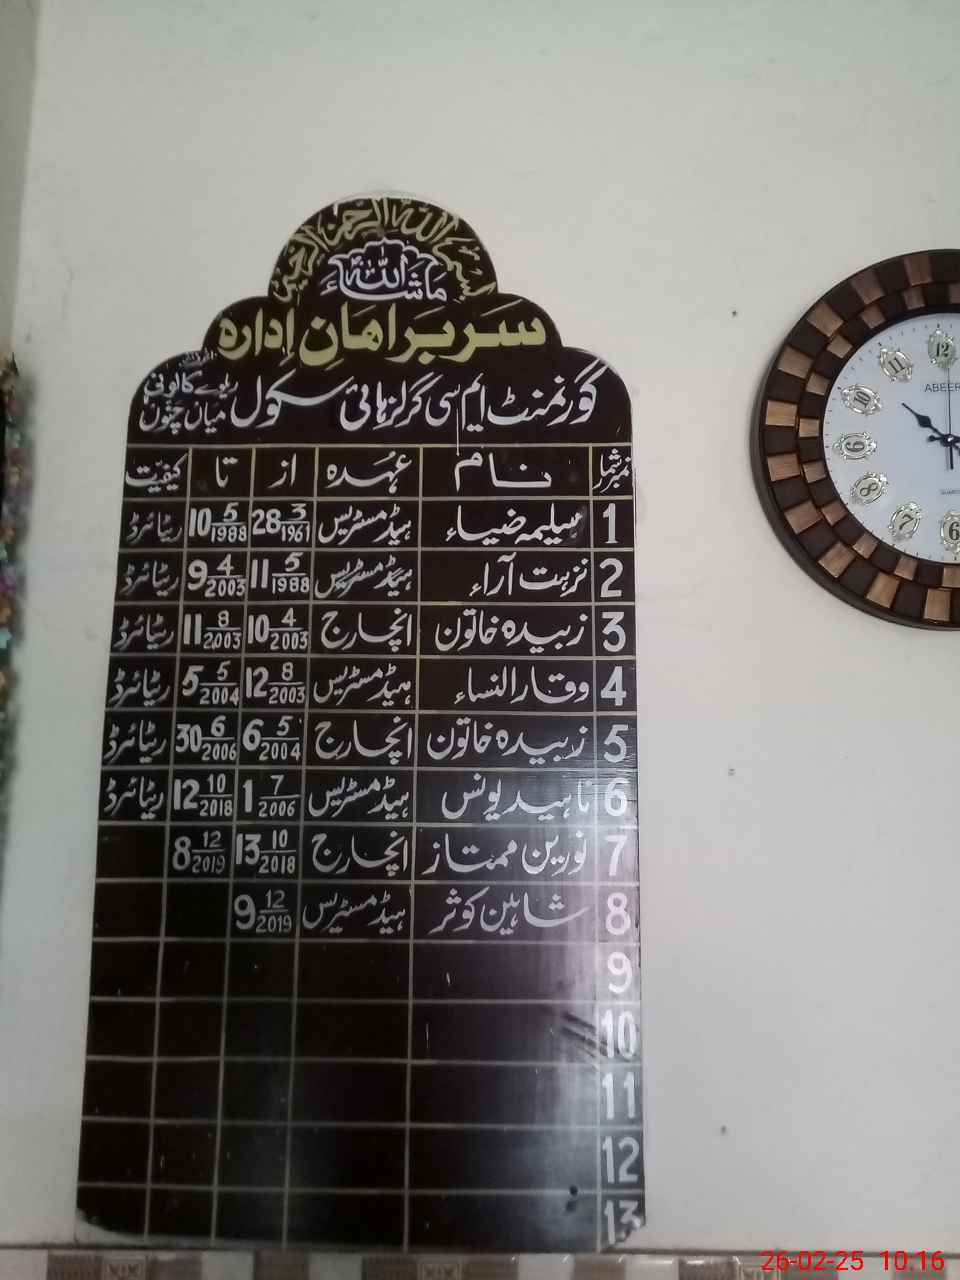 بسم الله الرحمن الرحيم
ماشاءالله
سربراهانِ اداره
گورنمنٹ ایم سی گرلز ہائی سکول ریلوے کالونی میاں چنوں
نمبر شمار نام عہدہ از تا کیفیت
1 سلیمہ ضیاء ہیڈمسٹریس 28 3/1961 10 5/1988 ریٹائرڈ
2 نزہت آراء ہیڈمسٹریس 11 5/1988 9 4/2003 ریٹائرڈ
3 زبیدہ خاتون انچارج 10 4/2003 11 8/2003 ریٹائرڈ
4 وقارالنساء ہیڈمسٹریس 12 8/2003 5 5/2004 ریٹائرڈ
5 زبیدہ خاتون انچارج 6 5/2004 30 6/2006 ریٹائرڈ
6 ناہید یونس ہیڈمسٹریس 1 7/2006 12 10/2018 ریٹائرڈ
7 نورین ممتاز انچارج 13 10/2018 8 12/2019
8 شاہین کوثر ہیڈمسٹریس 9 12/2019
9
10
11
12
13
12
11
10
9
8
7
6
26-02-25 10.16